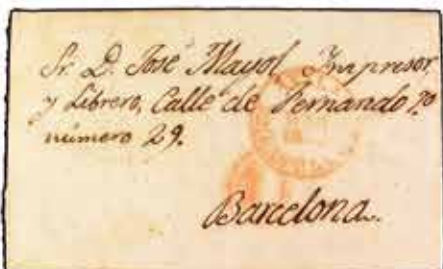 Sr. D. José Mayol, Impresor,
y Librero, Calle de Fernando 7º
número 29.
Barcelona.